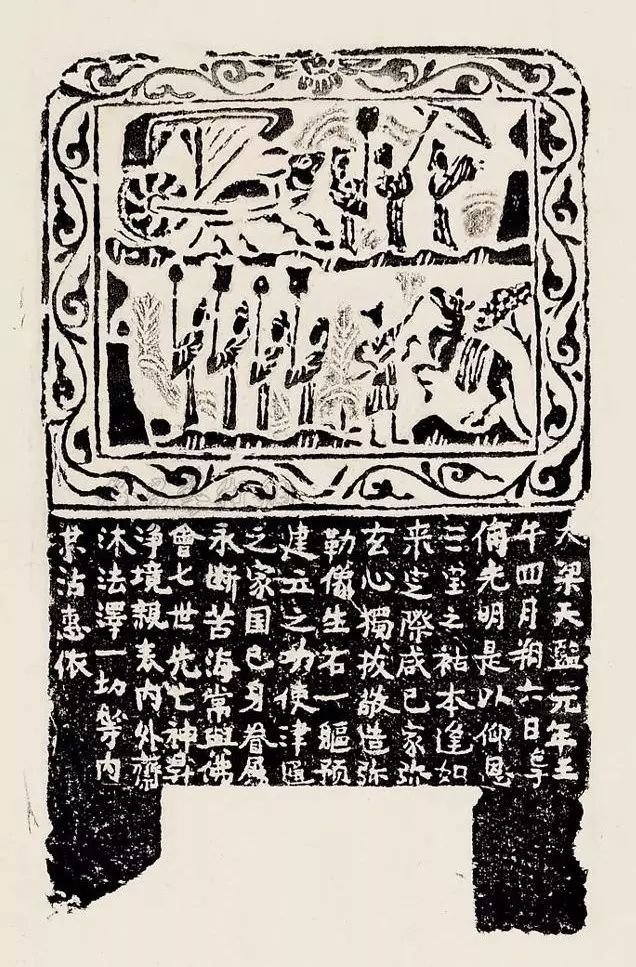 大梁天監元年壬
午四月朔六日
光明是以仰恩
三宝之祜本逢如
来之際咸已家弥
玄心獨拔敬造弥
勒像生石一軀预
建立之功使津通
之家国已身眷属
永断苦海常與佛
會七世先亡神昇
淨境親表内外齋
沐法澤一切等内
共沾惠依